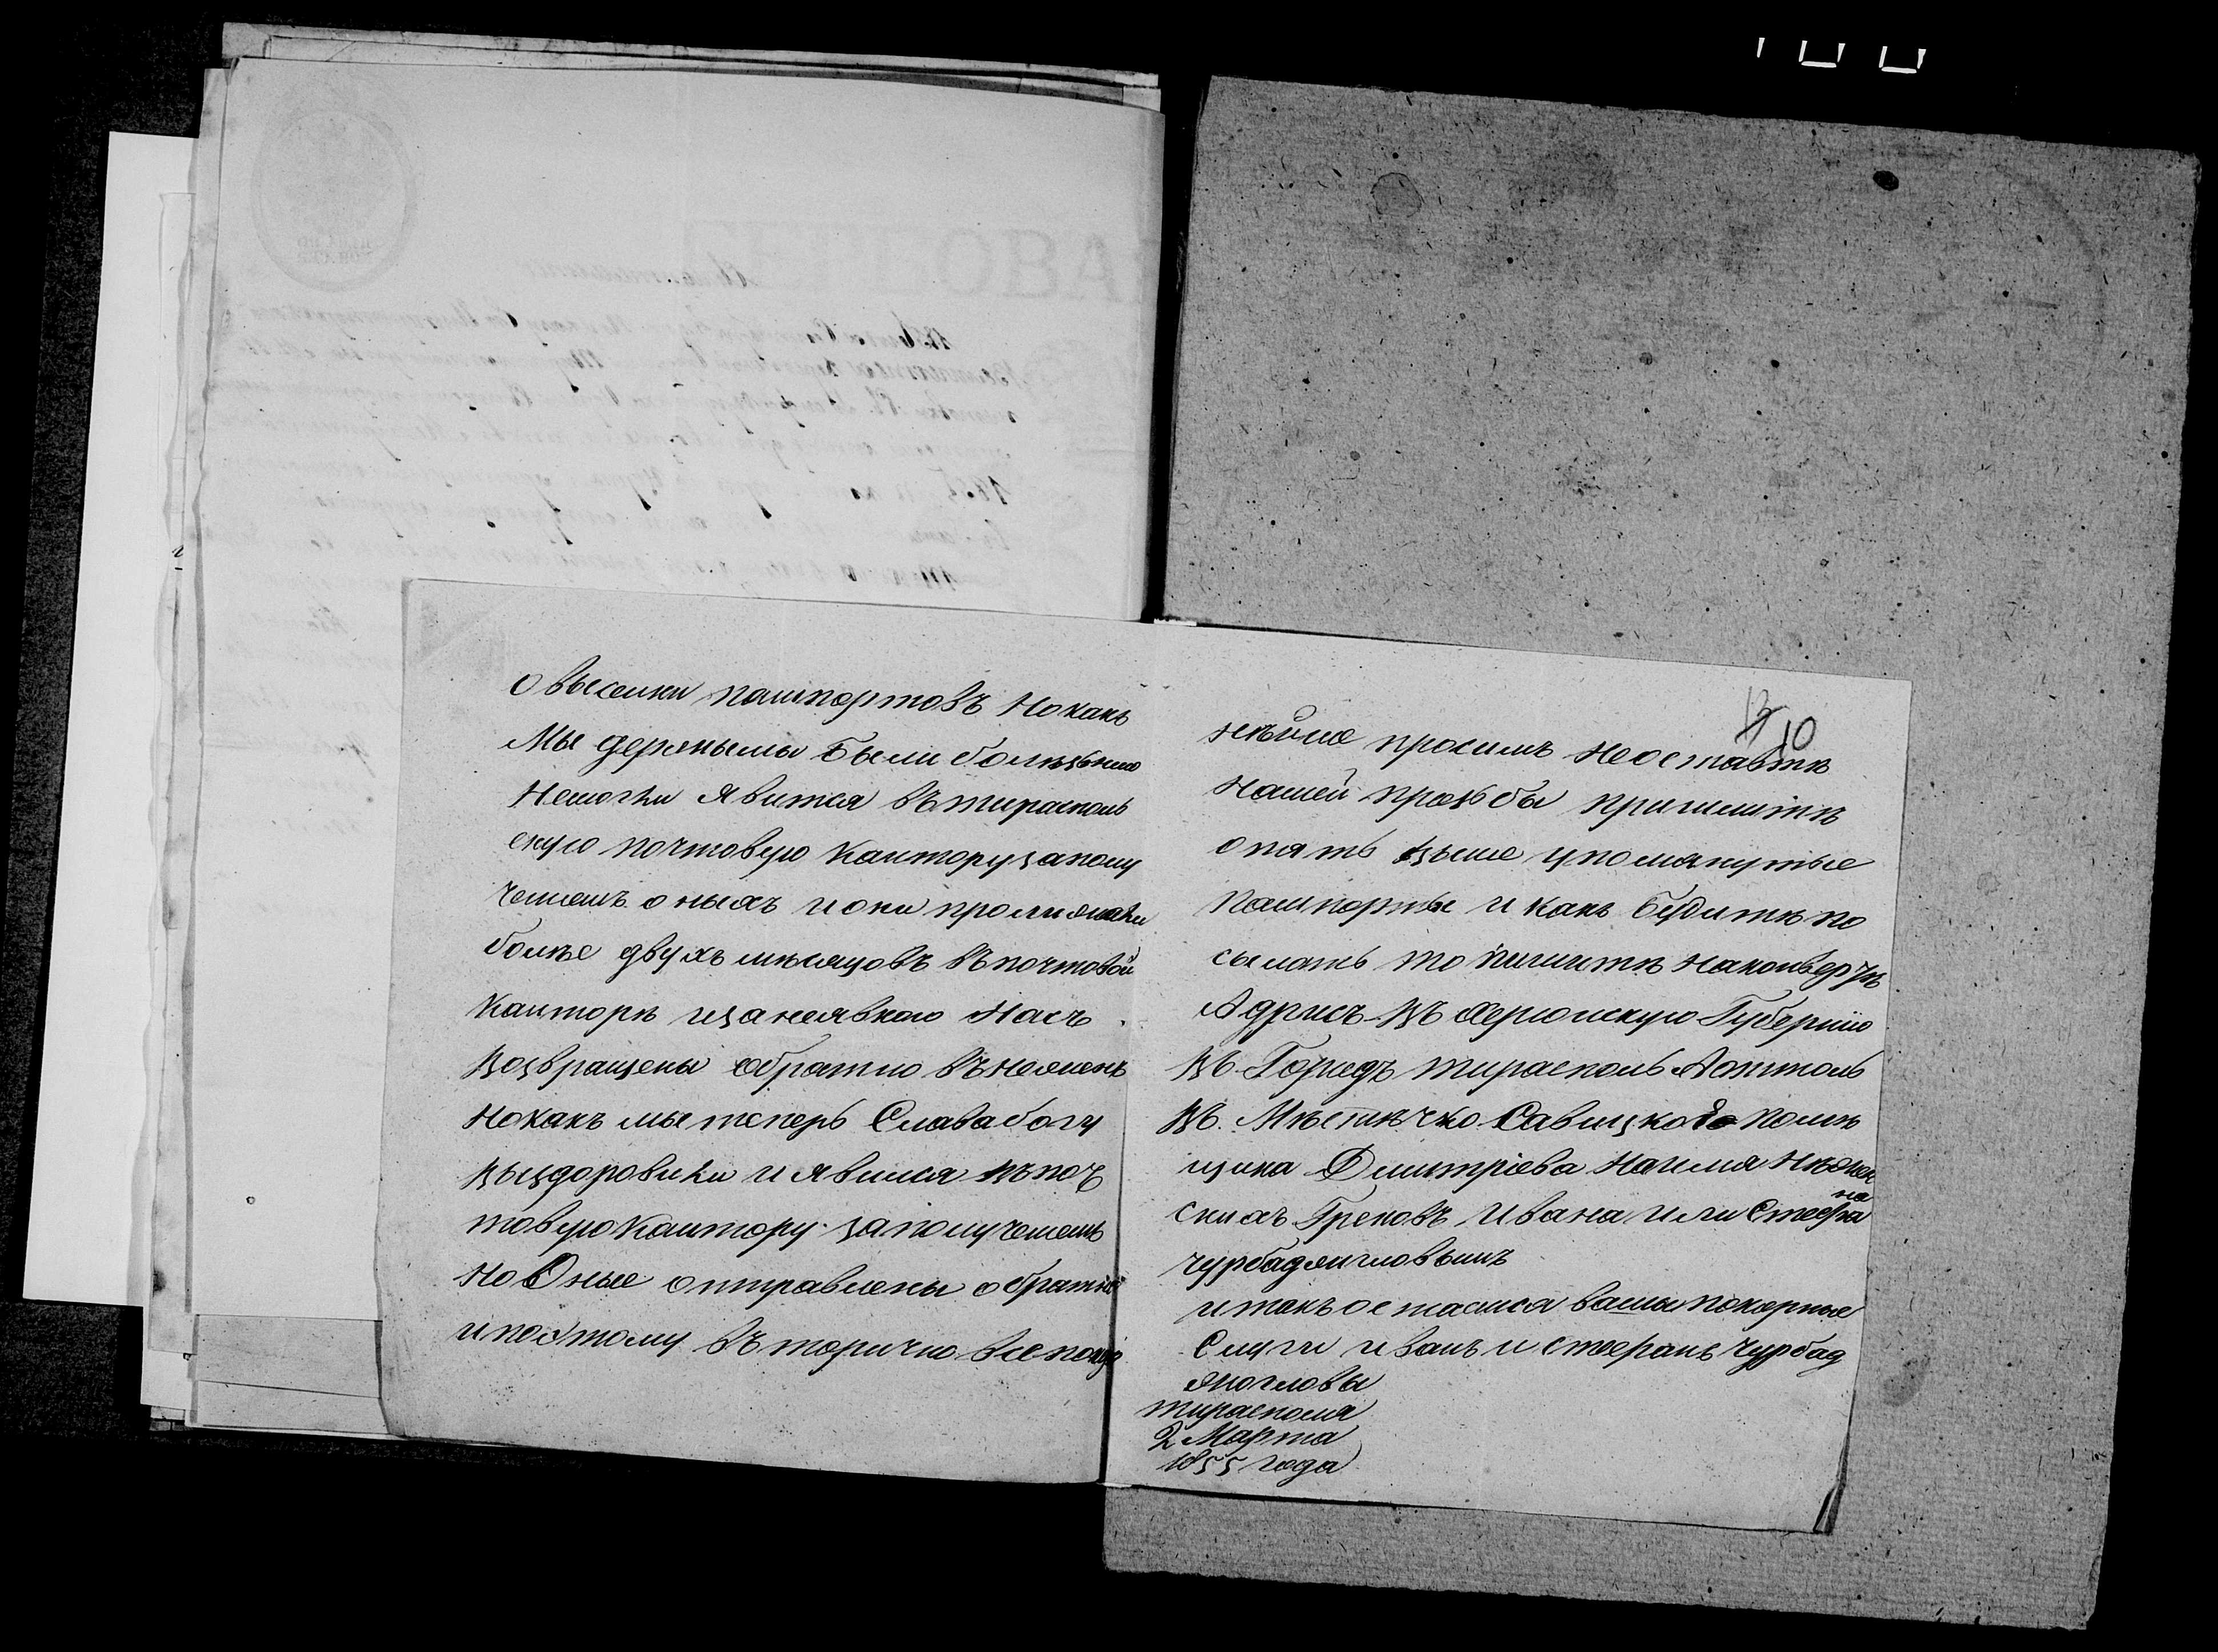 о высылки пашпортовъ Но какъ
Мы держимы Были болѣзьнию
Немогли Явится въ тираспольскую почтовую Кантору за полу
чениемъ оныхъ и они пролижали
болѣе двухъ мѣсяцовъ въ почтовой
Канторѣ и за неявкою Насъ
возвращены обратно въ нежинъ
но какъ мы теперь Слава богу
выздоровили и явился въ поч
товую Кантору за получениемъ
но Оные отправлены обратно
и поэтому въ торично всепокор
10
нѣйше просимъ Неоставтѣ
Нашей прозьбы пришлитѣ
опять выше упомянутые
Пашпорты и какъ будитѣ по
сылать то пишитѣ наконвертѣ
Адрисъ въ Херсонскую Губернию
въ Городъ тирасполь Аоттоль
въ Мѣстѣчко Савицкого помѣ
щика Дмитріева На имя Нѣжин
скихъ Грековъ Ивана или Стефа
на
чурбаджигловымъ
и такъ остаемся вашы покорные
Слуги иванъ и стефанъ чурбад
жиогловы
тирасполя
2 Марта
1855 года